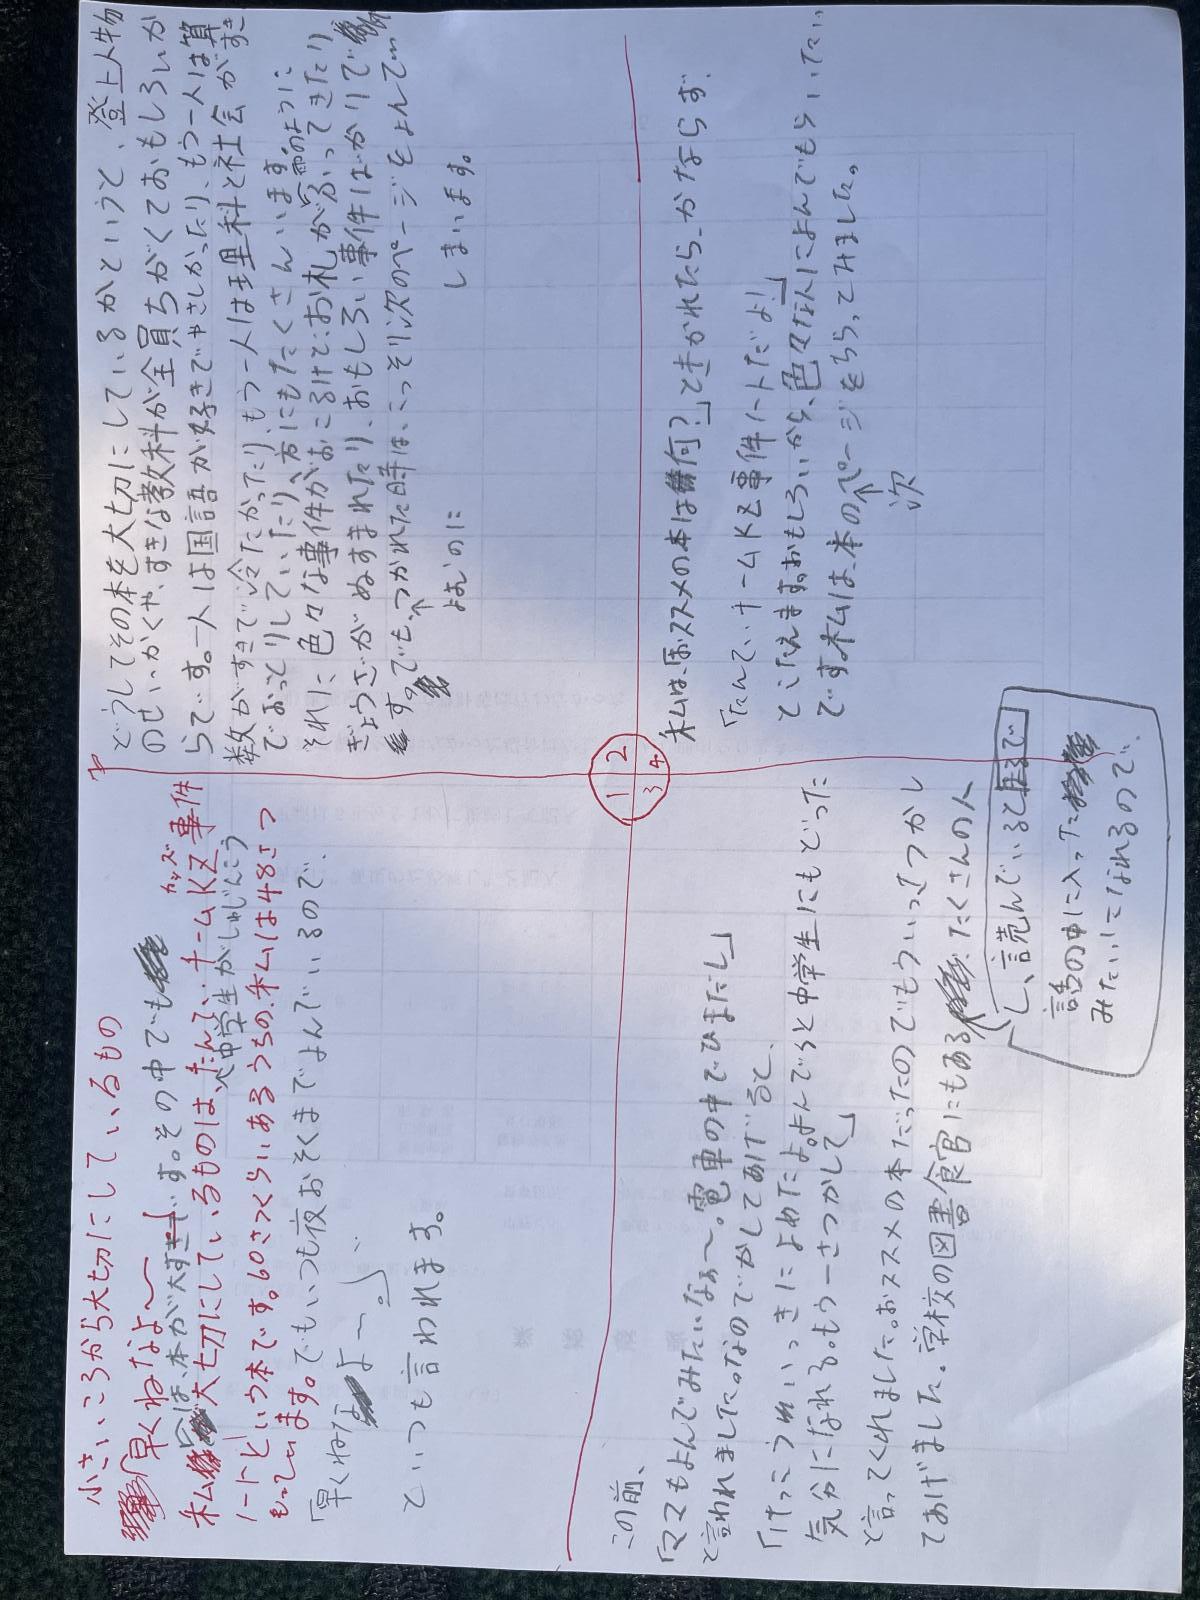 小さいころから大切にしているもの
「早くねなよ〜」
私は、本が大すきです。その中でも
私が大切にしているものは、たんてい、チームKZ事件
カッズ
中学生がしゅじんこう
ノートという本です。60さつくらいあるうちの、私ムは48さつ
もっています。でもいつも夜おそくまでよんでいるので、
「早くねなよ〜。」
といつも言われます。
どうしてその本を大切にしているかというと、登上人物
のせいかくや、すきな教科が全員ちがくておもしろいか
らです。一人は国語が好きでやさしかったり、もう一人は算
数がすきで冷たかったり、もう一人は理科と社会がすき
でおっとりしていたり、方にもたくさんいます。
それに色々な事件がおこるけど、お札が雨のようにふってきたり
ぎょうざがぬすまれたり、おもしろい事件ばかりで
す。でも、つかれた時は、こっそり次のページをよんで
よむのに
しまいます。
この前、
「ママもよんでみたいなぁ〜。電車の中でひまだし」
と言われました。なのでかしてあげると、
「けっこういいっきによめたよ。よんでると中学生にもどった
気分になれる。もう一さつかして」
と言ってくれました。おススメの本だったのでもういっさつかし
てあげました。学校の図書食官にもあるたくさんの人
し、読んでいると
話の中に入って
みたいになれるので、
私ムは、おススメの本は何?」ときかれたら、かならず、
「たんてい、チームKZ事件ノートだよ!」
とこたえます。おもしろいから、色々な人によんでもらいたい
です。私ムは、本のページをちらってみました。
次
1
2
3
4